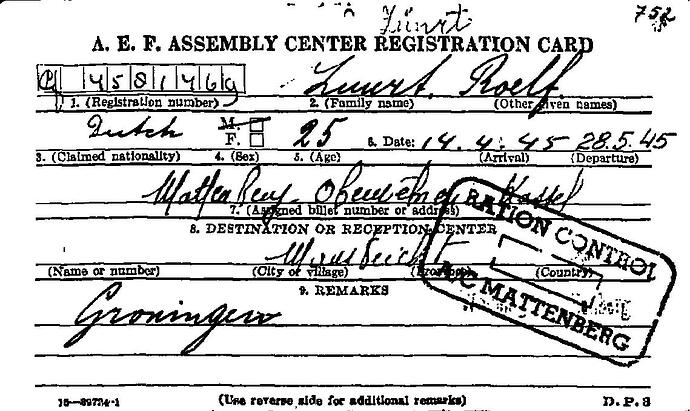 752
A. E. F. ASSEMBLY CENTER REGISTRATION CARD
4581469 Luurt Roelf
1. (Registration number) 2. (Family name) (Other given names)
Dutch M. F. 25 6. Date: 14.4.45 28.5.45
3. (Claimed nationality) 4. (Sex) 5. (Age) (Arrival) (Departure)
Mattenberg Kassel
7. (Assigned billet number or address)
8. DESTINATION OR RECEPTION CENTER
Maastricht
(Name or number) (City or village) (Province) (Country)
RATION CONTROL
MATTENBERG
9. REMARKS
Groningen
16—39734-1 (Use reverse side for additional remarks) D.P.3